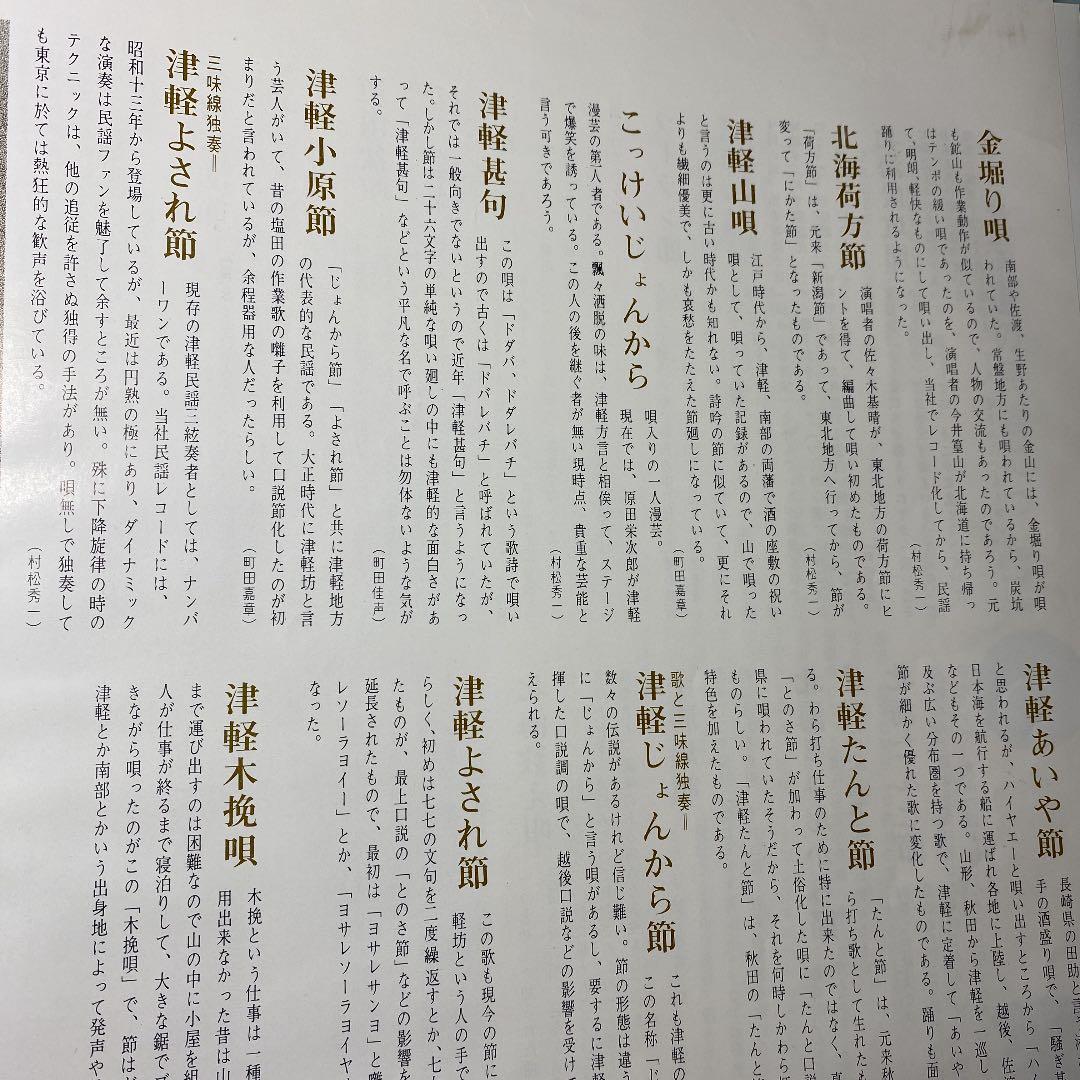 金堀り唄
南部や佐渡、生野あたりの金山には、金堀り唄が唄
われていた。常盤地方にも唄われているから、炭坑
も鉱山も作業動作が似ているので、人物の交流もあったのであろう。元
はテンポの緩い唄であったのを、演唱者の今井篁山が北海道に持ち帰っ
て、明朗、軽快なものにして唄い出し、当社でレコード化してから、民謡
踊りに利用されるようになった。
(村松秀一)
北海荷方節
演唱者の佐々木基晴が、東北地方の荷方節にヒ
ントを得て、編曲して唄い初めたものである。
「荷方節」は、元来「新潟節」であって、東北地方へ行ってから、節が
変って「にかた節」となったものである。
(村松秀一)
津軽山唄
江戸時代から、津軽、南部の両藩で酒の座敷の祝い
唄として、唄っていた記録があるので、山で唄った
と言うのは更に古い時代かも知れない。詩吟の節に似ていて、更にそれ
よりも繊細優美で、しかも哀愁をたたえた節廻しになっている。
(町田嘉章)
こっけいじょんから
唄入りの一人漫芸。
現在では、原田栄次郎が津軽
漫芸の第一人者である。飄々洒脱の味は、津軽方言と相俟って、ステージ
で爆笑を誘っている。この人の後を継ぐ者が無い現時点、貴重な芸能と
言う可きであろう。
(村松秀一)
津軽甚句
この唄は「ドダバ、ドダレバチ」という歌詩で唄い
出すので古くは「ドバレバチ」と呼ばれていたが、
それでは一般向きでないというので近年「津軽甚句」と言うようになっ
た。しかし節は二十六文字の単純な唄い廻しの中にも津軽的な面白さがあ
って「津軽甚句」などという平凡な名で呼ぶことは勿体ないような気が
する。
(町田佳声)
津軽小原節
「じょんから節」「よされ節」と共に津軽地方
の代表的な民謡である。大正時代に津軽坊と言
う芸人がいて、昔の塩田の作業歌の囃子を利用して口説節化したのが初
まりだと言われているが、余程器用な人だったらしい。
(町田嘉章)
三味線独奏＝
津軽よされ節
現存の津軽民謡三絃奏者としては、ナンバ
ーワンである。当社民謡レコードには、
昭和十三年から登場しているが、最近は円熟の極にあり、ダイナミック
な演奏は民謡ファンを魅了して余すところが無い。殊に下降旋律の時の
テクニックは、他の追従を許さぬ独得の手法があり。唄無しで独奏して
も東京に於ては熱狂的な歓声を浴びている。
(村松秀一)
津軽あいや節
長崎県の田助と言
手の酒盛り唄で、「騒ぎ
と思われるが、ハイヤエーと唄い出すところから「ハ
日本海を航行する船に運ばれ各地に上陸し、越後、佐
などもその一つである。山形、秋田から津軽を一巡し
及ぶ広い分布圏を持つ歌で、津軽に定着して「あいや
節が細かく優れた歌に変化したものである。踊りも面
津軽たんと節
「たんと節」は、元来秋
ら打ち歌として生れたも
る。わら打ち仕事のために特に出来たのではなく、
「とのさ節」が加わって土俗化した唄に「たんと口説
県に唄われていたそうだから、それを何時しかわら
ものらしい。「津軽たんと節」は、秋田の「たんと
特色を加えたものである。
歌と三味線独奏＝
津軽じょんから節
これも津軽の
この名称「じ
数々の伝説があるけれど信じ難い。節の形態は違う
に「じょんから」と言う唄があるし、要するに津軽
揮した口説調の唄で、越後口説などの影響を受けて
えられる。
津軽よされ節
この歌も現今の節に
軽坊という人の手で
らしく、初めは七七の文句を二度繰返すとか、七七
たものが、最上口説の「とのさ節」などの影響を
延長されたもので、最初は「ヨサレサンヨ」と囃
レソーラヨイー」とか、「ヨサレソーラヨイヤ
なった。
津軽木挽唄
木挽という仕事は一種
用出来なかった昔は山
まで運び出すのは困難なので山の中に小屋を組
人が仕事が終るまで寝泊りして、大きな鋸でゴ
きながら唄ったのがこの「木挽唄」で、節はど
津軽とか南部とかいう出身地によって発声や